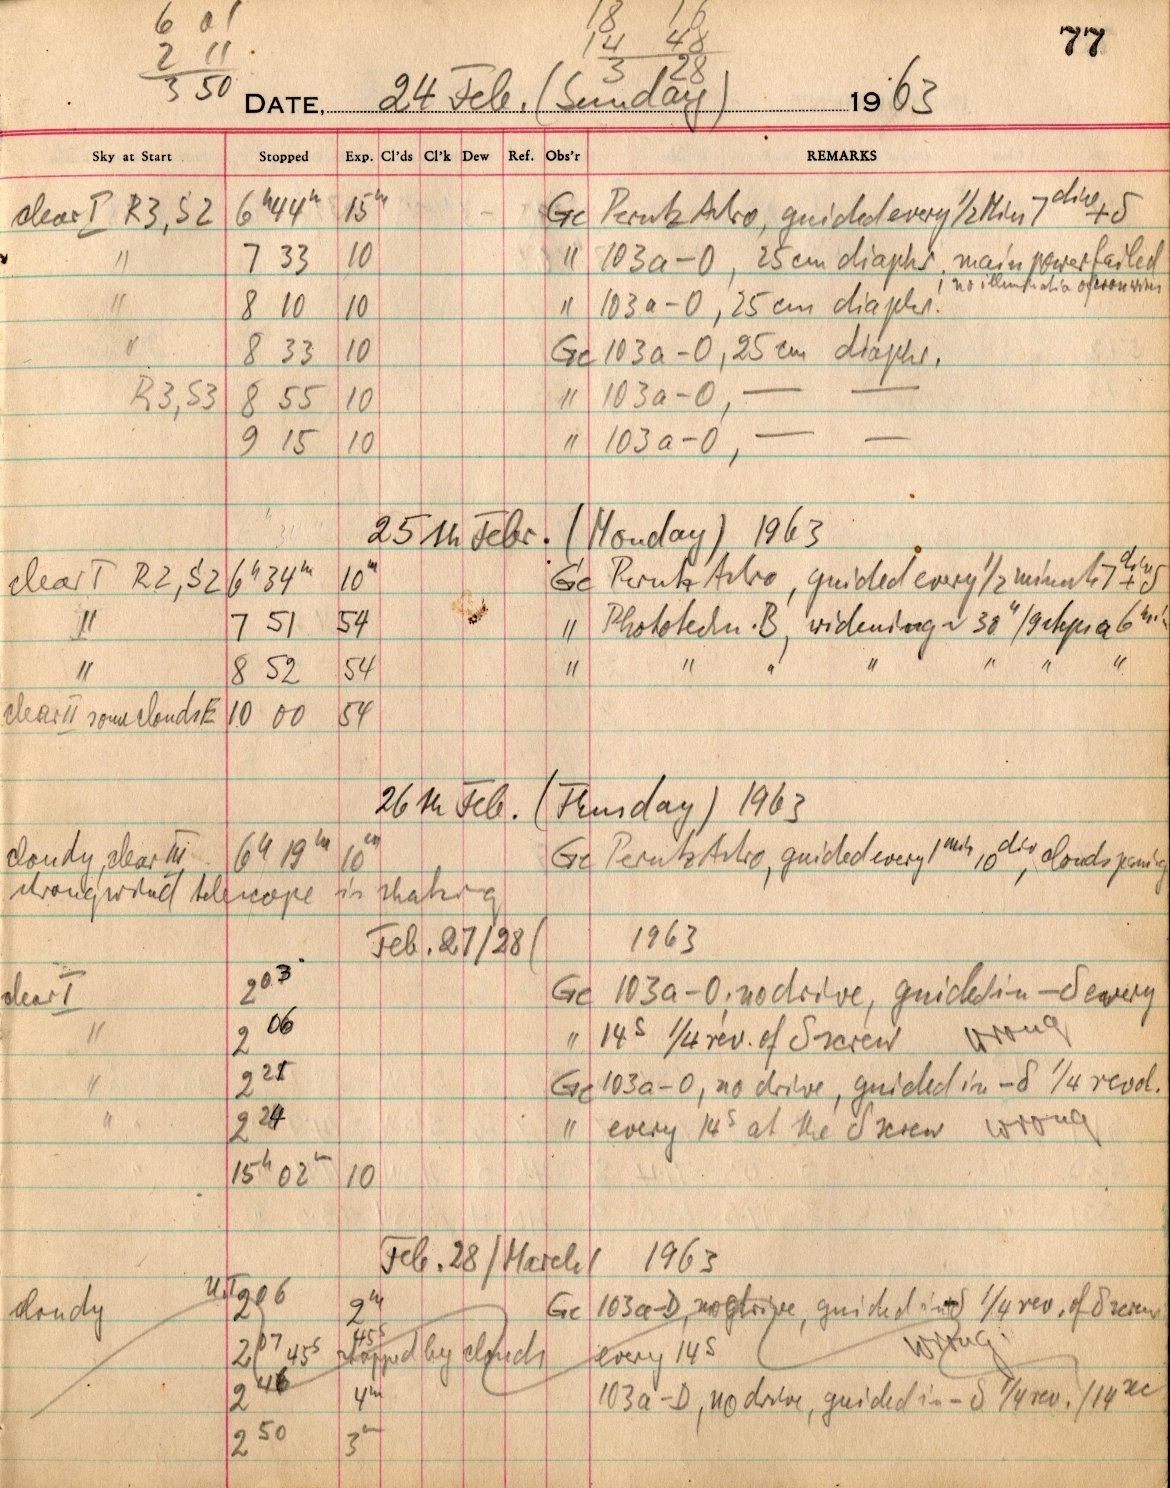 6 01
2 11
3 50
18 16
14 48
3 28
77
DATE, 24 Feb. (Sunday) 1963
Sky at Start Stopped Exp. Cl'ds Cl'k Dew Ref. Obs'r REMARKS
clear I R3, S2 6h 44m 15m Gc Perutz Astro, guided every 1/2 Min 7 div + δ
" 7 33 10 " 103a-O, 25 cm diaphr. main power failed
, no illumination of
" 8 10 10 " 103a-O, 25 cm diaphr.
" 8 33 10 Gc 103a-O, 25 cm diaphr.
R3, S3 8 55 10 " 103a-O, — —
9 15 10 " 103a-O, — —
25th Febr. (Monday) 1963
clear I R2, S2 6h 34m 10m Gc Perutz Astro, guided every 1/2 minute 7 div + δ
" 7 51 54 " Phototechn. B, widening ~ 30"/
" 8 52 54 " " " " " " "
clear II some clouds E 10 00 54
26th Feb. (Thusday) 1963
cloudy, clear III 6h 19m 10m Gc Perutz Astro, guided every 1 min, 10 div, clouds passing
strong wind telescope is shaking
Feb. 27/28 ( 1963
clear I 2 03 Gc 103a-O, no drive, guided in -δ every
" 2 06 " 14s 1/4 rev. of δ screw wrong
" 2 21 Gc 103a-O, no drive, guided in -δ 1/4 revol.
" 2 24 " every 14s at the δ screw wrong
15h 02m 10
Feb. 28/March 1 1963
cloudy U.T. 2 06 2m Gc 103a-D, no drive, guided in -δ 1/4 rev. of δ screw
2 07 45s 45s stopped by clouds every 14s wrong!
2 46 4m 103a-D, no drive, guided in -δ 1/4 rev. /14 sec
2 50 3m